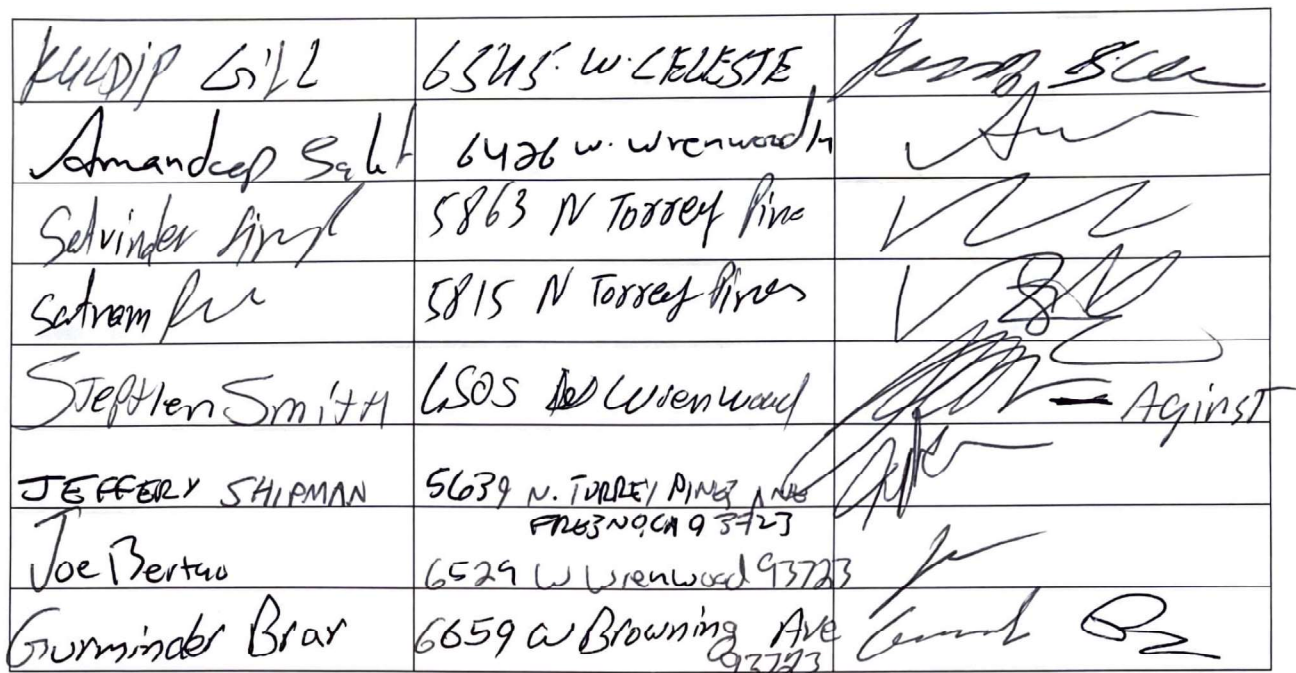 KULDIP GILL 6545. W. CELESTE
Amandeep 6426 w. wrenwood ln
Satvinder Singh 5863 N Torrey Pine
Satnam 5815 N Torrey Pines
Stephen Smith 6505 Wrenwood — Aginst
JEFFERY SHIPMAN 5639 N. TORREY PINES AVE
FRESNO, CA 93723
Joe 6529 W Wrenwood 93723
Gurminder Brar 6659 W Browning Ave
93723